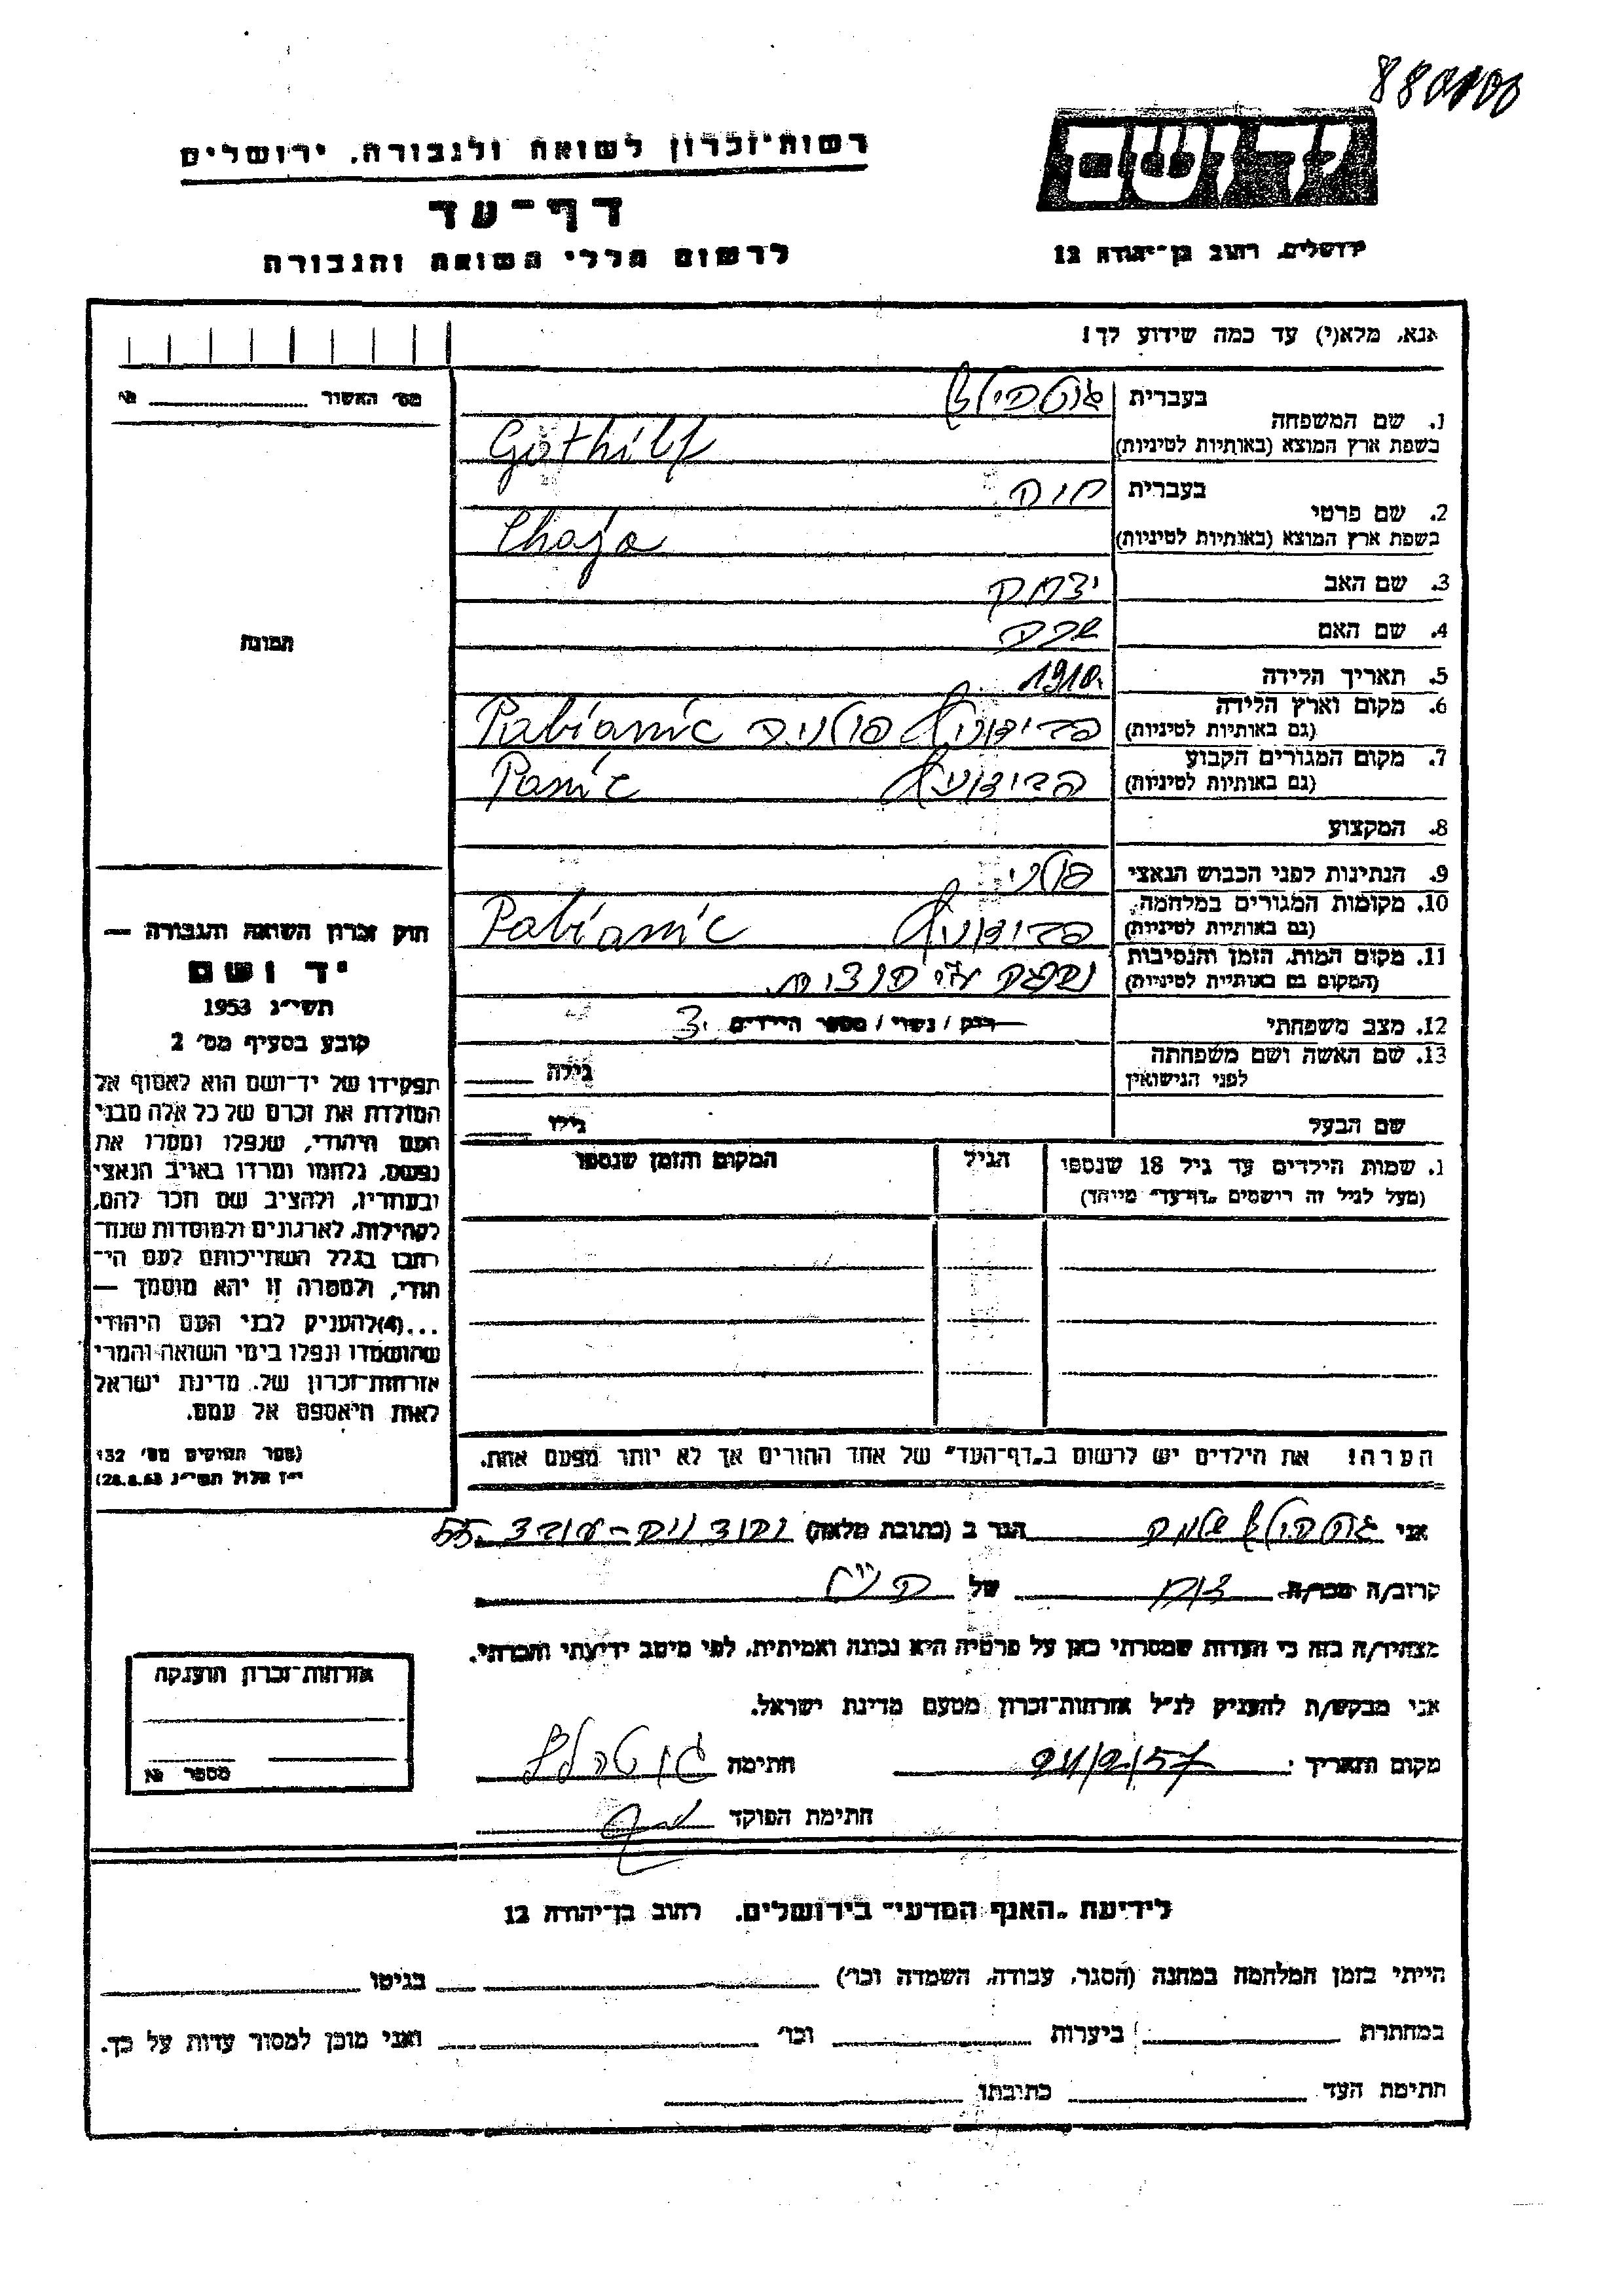 רשות־זכרון לשואה ולגבורה, ירושלים
דף־עד
לרשום חללי השואה והגבורה
יד ושם
ירושלים, רחוב בן־יהודה 12
אנא, מלא(י) עד כמה שידוע לך!
מס' האשור № 
תמונה
1. שם המשפחה בעברית גוטהילף
בשפת ארץ המוצא (באותיות לטיניות) Gothilf
2. שם פרטי בעברית חיה
בשפת ארץ המוצא (באותיות לטיניות) Chaja
3. שם האב יצחק
4. שם האם
5. תאריך הלידה 1910.
6. מקום וארץ הלידה (גם באותיות לטיניות) פביאניץ פולניה Pabianic
7. מקום המגורים הקבוע (גם באותיות לטיניות) פביאניץ Panic
8. המקצוע
9. הנתינות לפני הכבוש הנאצי פולני
10. מקומות המגורים במלחמה (גם באותיות לטיניות) פביאניץ Pabianic
11. מקום המות, הזמן והנסיבות (המקום גם באותיות לטיניות)
12. מצב משפחתי רווק / נשוי / מספר הילדים 3.
13. שם האשה ושם משפחתה לפני הנישואין גילה
שם הבעל גילו
1. שמות הילדים עד גיל 18 שנספו (מעל לגיל זה רושמים „דף־עד" מיוחד) הגיל המקום והזמן שנספו
הערה! את הילדים יש לרשום ב„דף־העד" של אחד ההורים אך לא יותר מפעם אחת.
חוק זכרון השואה והגבורה —
יד ושם
תשי"ג 1953
קובע בסעיף מס' 2
תפקידו של יד־ושם הוא לאסוף אל
המולדת את זכרם של כל אלה מבני
העם היהודי, שנפלו ומסרו את
נפשם, נלחמו ומרדו באויב הנאצי
ובעוזריו, ולהציב שם וזכר להם,
לקהילות, לארגונים ולמוסדות שנח־
רבו בגלל השתייכותם לעם הי־
הודי, ולמטרה זו יהא מוסמך —
...(4)להעניק לבני העם היהודי
שהושמדו ונפלו בימי השואה והמרי
אזרחות־זכרון של. מדינת ישראל
לאות היאספם אל עמם.
(ספר החוקים מס' 132
י"ז אלול תשי"ג 28.8.53)
אני גוטהילף שלמה הגר ב (כתובת מלאה)
קרוב/ה מכר/ה של
מצהיר/ה בזה כי העדות שמסרתי כאן על פרטיה היא נכונה ואמיתית, לפי מיטב ידיעתי והכרתי.
אני מבקש/ת להעניק לנ"ל אזרחות־זכרון מטעם מדינת ישראל.
מקום ותאריך חתימה
חתימת הפוקד
אזרחות־זכרון הוענקה
מספר №
לידיעת „האגף המדעי" בירושלים, רחוב בן־יהודה 12
הייתי בזמן המלחמה במחנה (הסגר, עבודה, השמדה וכו') בגיטו
במחתרת ביערות וכו' ואני מוכן למסור עדות על כך.
חתימת העד כתובתו